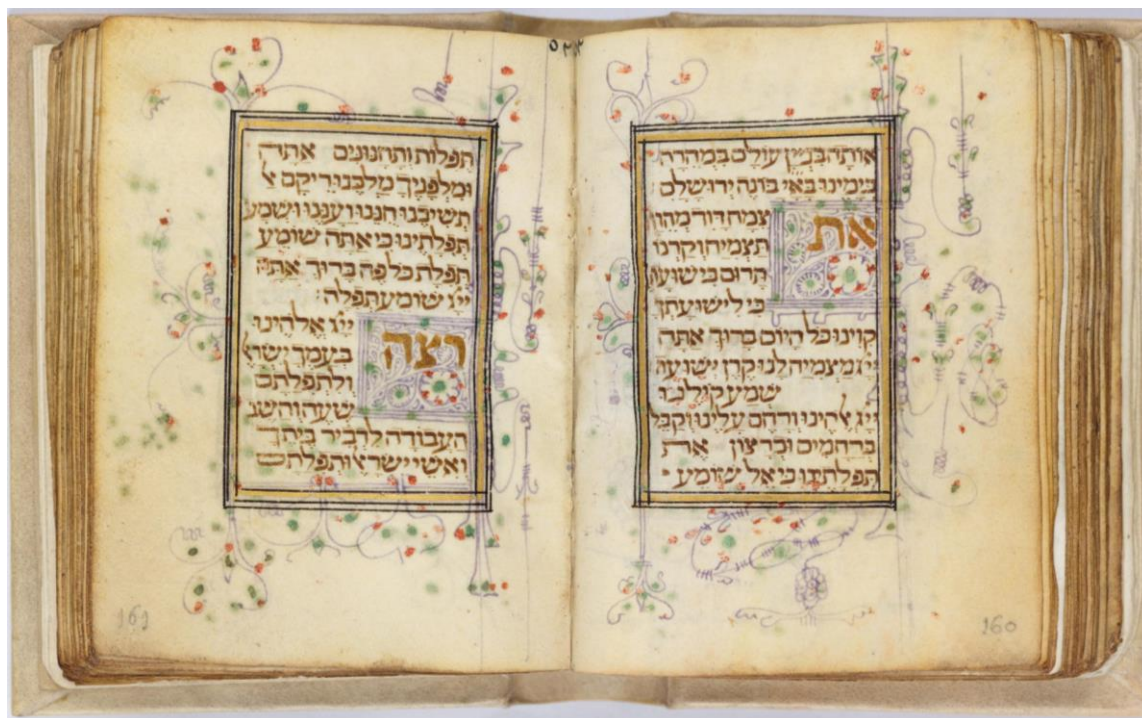 אותה בנין עולם במהרה
בימינו באי בונה ירושלם
את צמח דוד מהרה
תצמיח וקרנו
תרום בישועת
כי לישועתך
קוינו כל היום ברוך אתה
ייי מצמיח לנו קרן ישועה
שמע קולנו
ייי אלהינו ורחם עלינו וקבל
ברחמים וברצון את
תפלתינו כי אל שומע
160
תפלות ותחנונים אתה
ומלפניך מלכנו ריקם א
תשיבנו חננו ועננו ושמע
תפלתינו כי אתה שומע
תפלת כל פה ברוך אתה
ייי שומע תפלה:
רצה ייי אלהינו
בעמך ישרא
ולתפלתם
שעה והשב
העבודה לדביר ביתך
ואשי ישראל ותפלתם
161